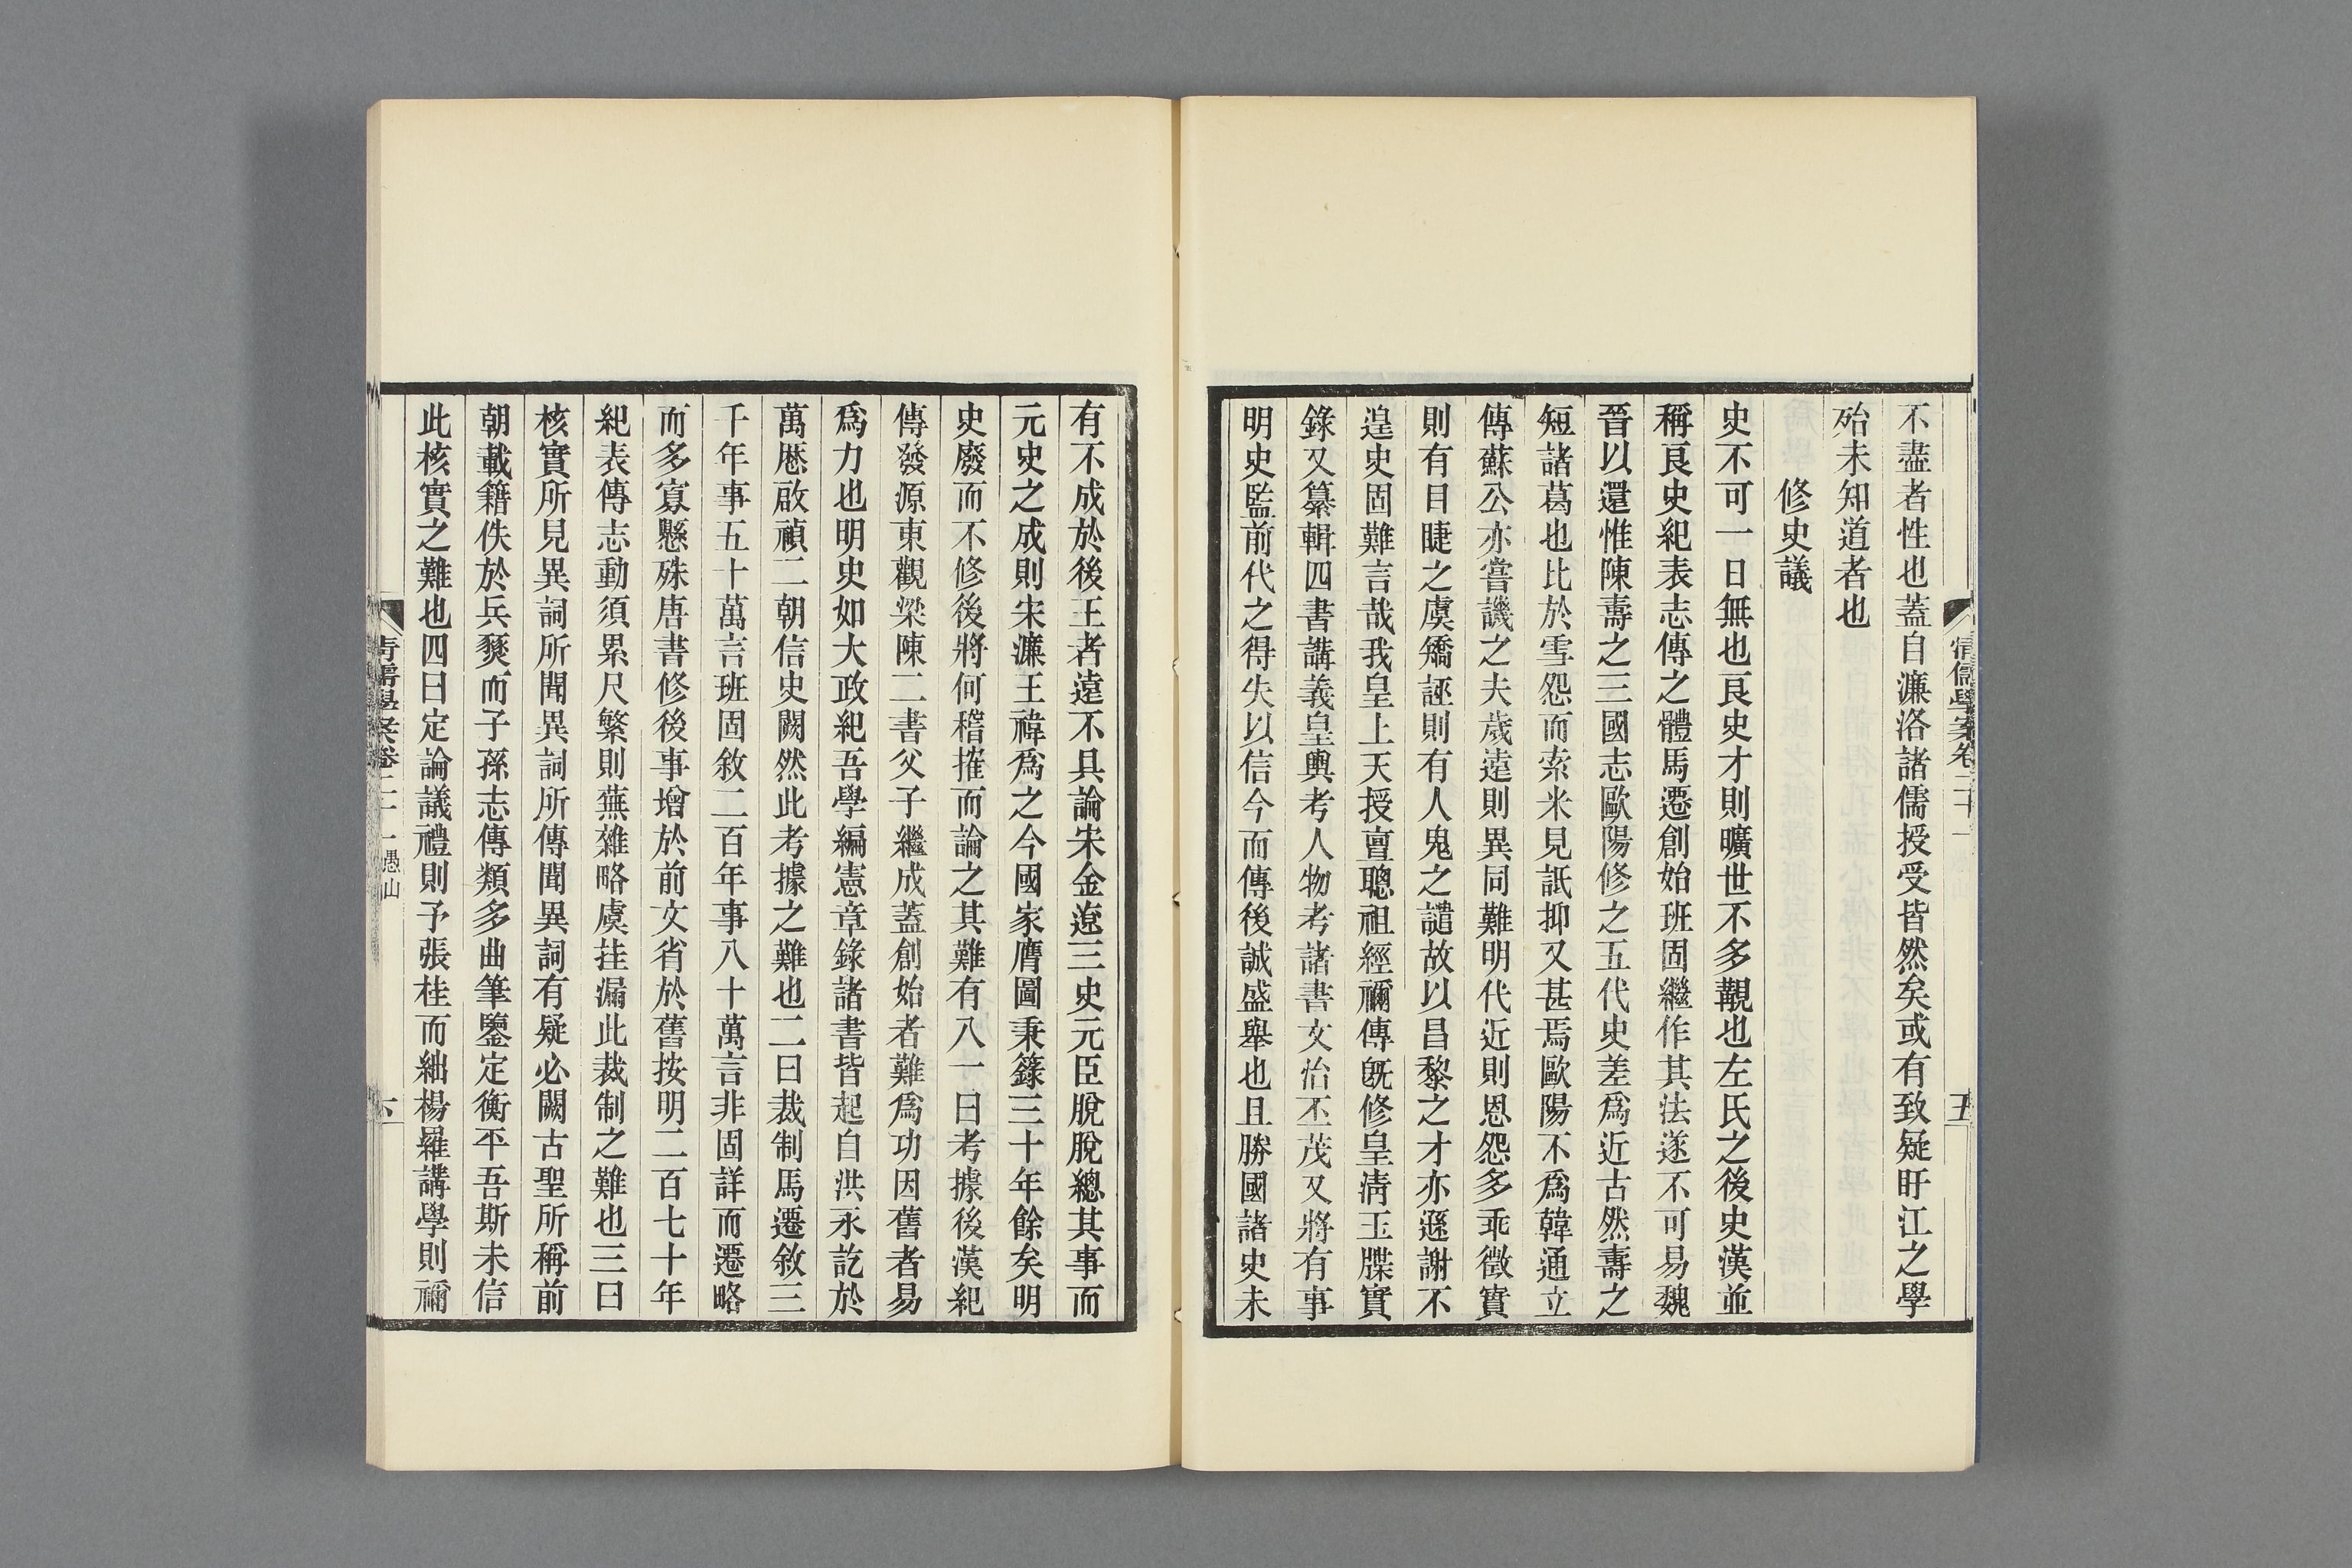 清儒學案卷二十一
五
不盡者性也蓋自濂洛諸儒授受皆然矣或有致疑盱江之學
殆未知道者也
修史議
史不可一日無也良史才則曠世不多覯也左氏之後史漢並
稱良史紀表志傳之體馬遷創始班固繼作其法遂不可易魏
晉以還惟陳壽之三國志歐陽修之五代史差爲近古然壽之
短諸葛也比於雪怨而索米見詆抑又甚焉歐陽不爲韓通立
傳蘇公亦嘗譏之夫歲遠則異同難明代近則恩怨多乖徵實
則有目睫之虞矯誣則有人鬼之譴故以昌黎之才亦遜謝不
遑史固難言哉我皇上天授亶聰祖經禰傳旣修皇淸玉牒實
錄又纂輯四書講義皇輿考人物考諸書文治丕茂又將有事
明史監前代之得失以信今而傳後誠盛舉也且勝國諸史未
有不成於後王者遠不具論宋金遼三史元臣脫脫總其事而
元史之成則宋濂王禕爲之今國家膺圖秉籙三十年餘矣明
史廢而不修後將何稽搉而論之其難有八一曰考據後漢紀
傳發源東觀梁陳二書父子繼成蓋創始者難爲功因舊者易
爲力也明史如大政紀吾學編憲章錄諸書皆起自洪永訖於
萬厯啟禎二朝信史闕然此考據之難也二曰裁制馬遷敘三
千年事五十萬言班固敘二百年事八十萬言非固詳而遷略
而多寡懸殊唐書修後事增於前文省於舊按明二百七十年
紀表傳志動須累尺繁則蕪雜略虞挂漏此裁制之難也三曰
核實所見異詞所聞異詞所傳聞異詞有疑必闕古聖所稱前
朝載籍佚於兵燹而子孫志傳類多曲筆鑒定衡平吾斯未信
此核實之難也四曰定論議禮則予張桂而絀楊羅講學則禰
清儒學案卷二十一 愚山
六